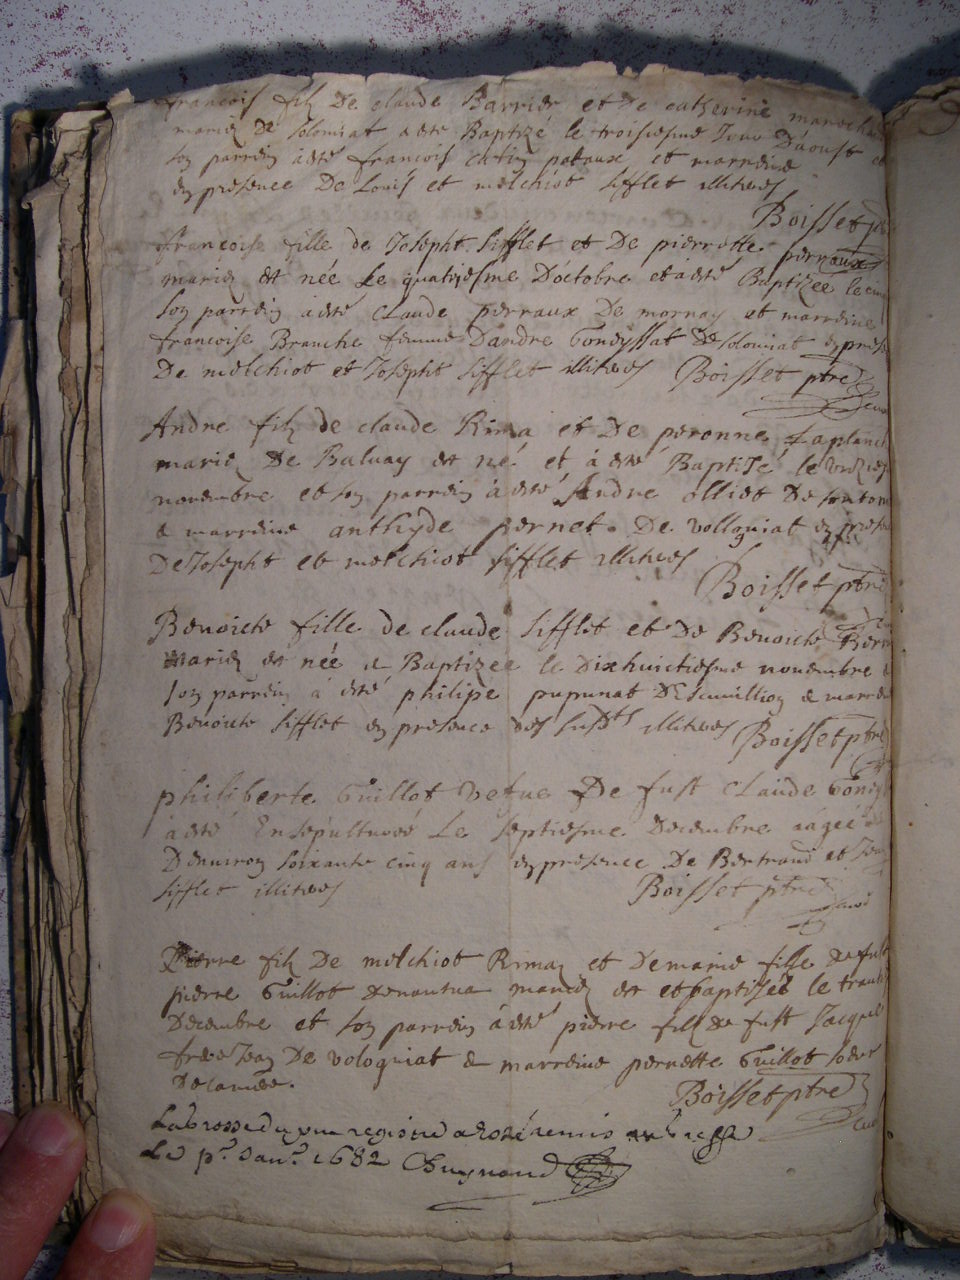 francois filz De claude Barrier et De catherine marecha
mariez De solomiat a esté Baptizé le troisiesme Jour D'aoust et
son parrein à esté francois et marreine
en presence De Louis et melchiot sifflet illiteres
Boisset p
françoise fille de Joseph sifflet et De pierrette perraux
mariez est née Le quatriesme D'octobre et à esté Baptizée le
son parrein à esté CLaude perraux De mornay et marreine
francoise Branche femme D'andre Goneyssat De solomiat en prese
De melchiot et Joseph sifflet illiteres Boisset ptre
Andre filz de claude Rima et De peronne Laplan
mariez De Baluay est né et à esté Baptisé le
novembre et son parrein à esté Andre olliet De
& marreine anthyde pernet De vollogniat en prese
De Joseph et melchiot sifflet illiteres
Boisset ptre
Benoicte fille de claude sifflet et De Benoicte
mariez est née & Baptizee le Dixhuictiesme novembre
son parrein à esté philipe pupunat & marreine
Benoicte sifflet en presence des susdts illiteres Boisset ptre
philiberte Guillot vefue De fust CLaude Gone
à esté Ensépulturée Le septiesme Decembre aagée
Denviron soixante cinq ans en presence De Bertrand et
sifflet illiteres Boisset ptre
Pierre filz De melchiot Rimaz et De marie fille de fust
pierre Guillot mariez est et baptisée le
Decembre et son parrein à esté pierre filz de fust Jacque
De vologniat & marreine pernette Guillot
Boisset ptre
registre a esté remis
Le pr Janr 1682